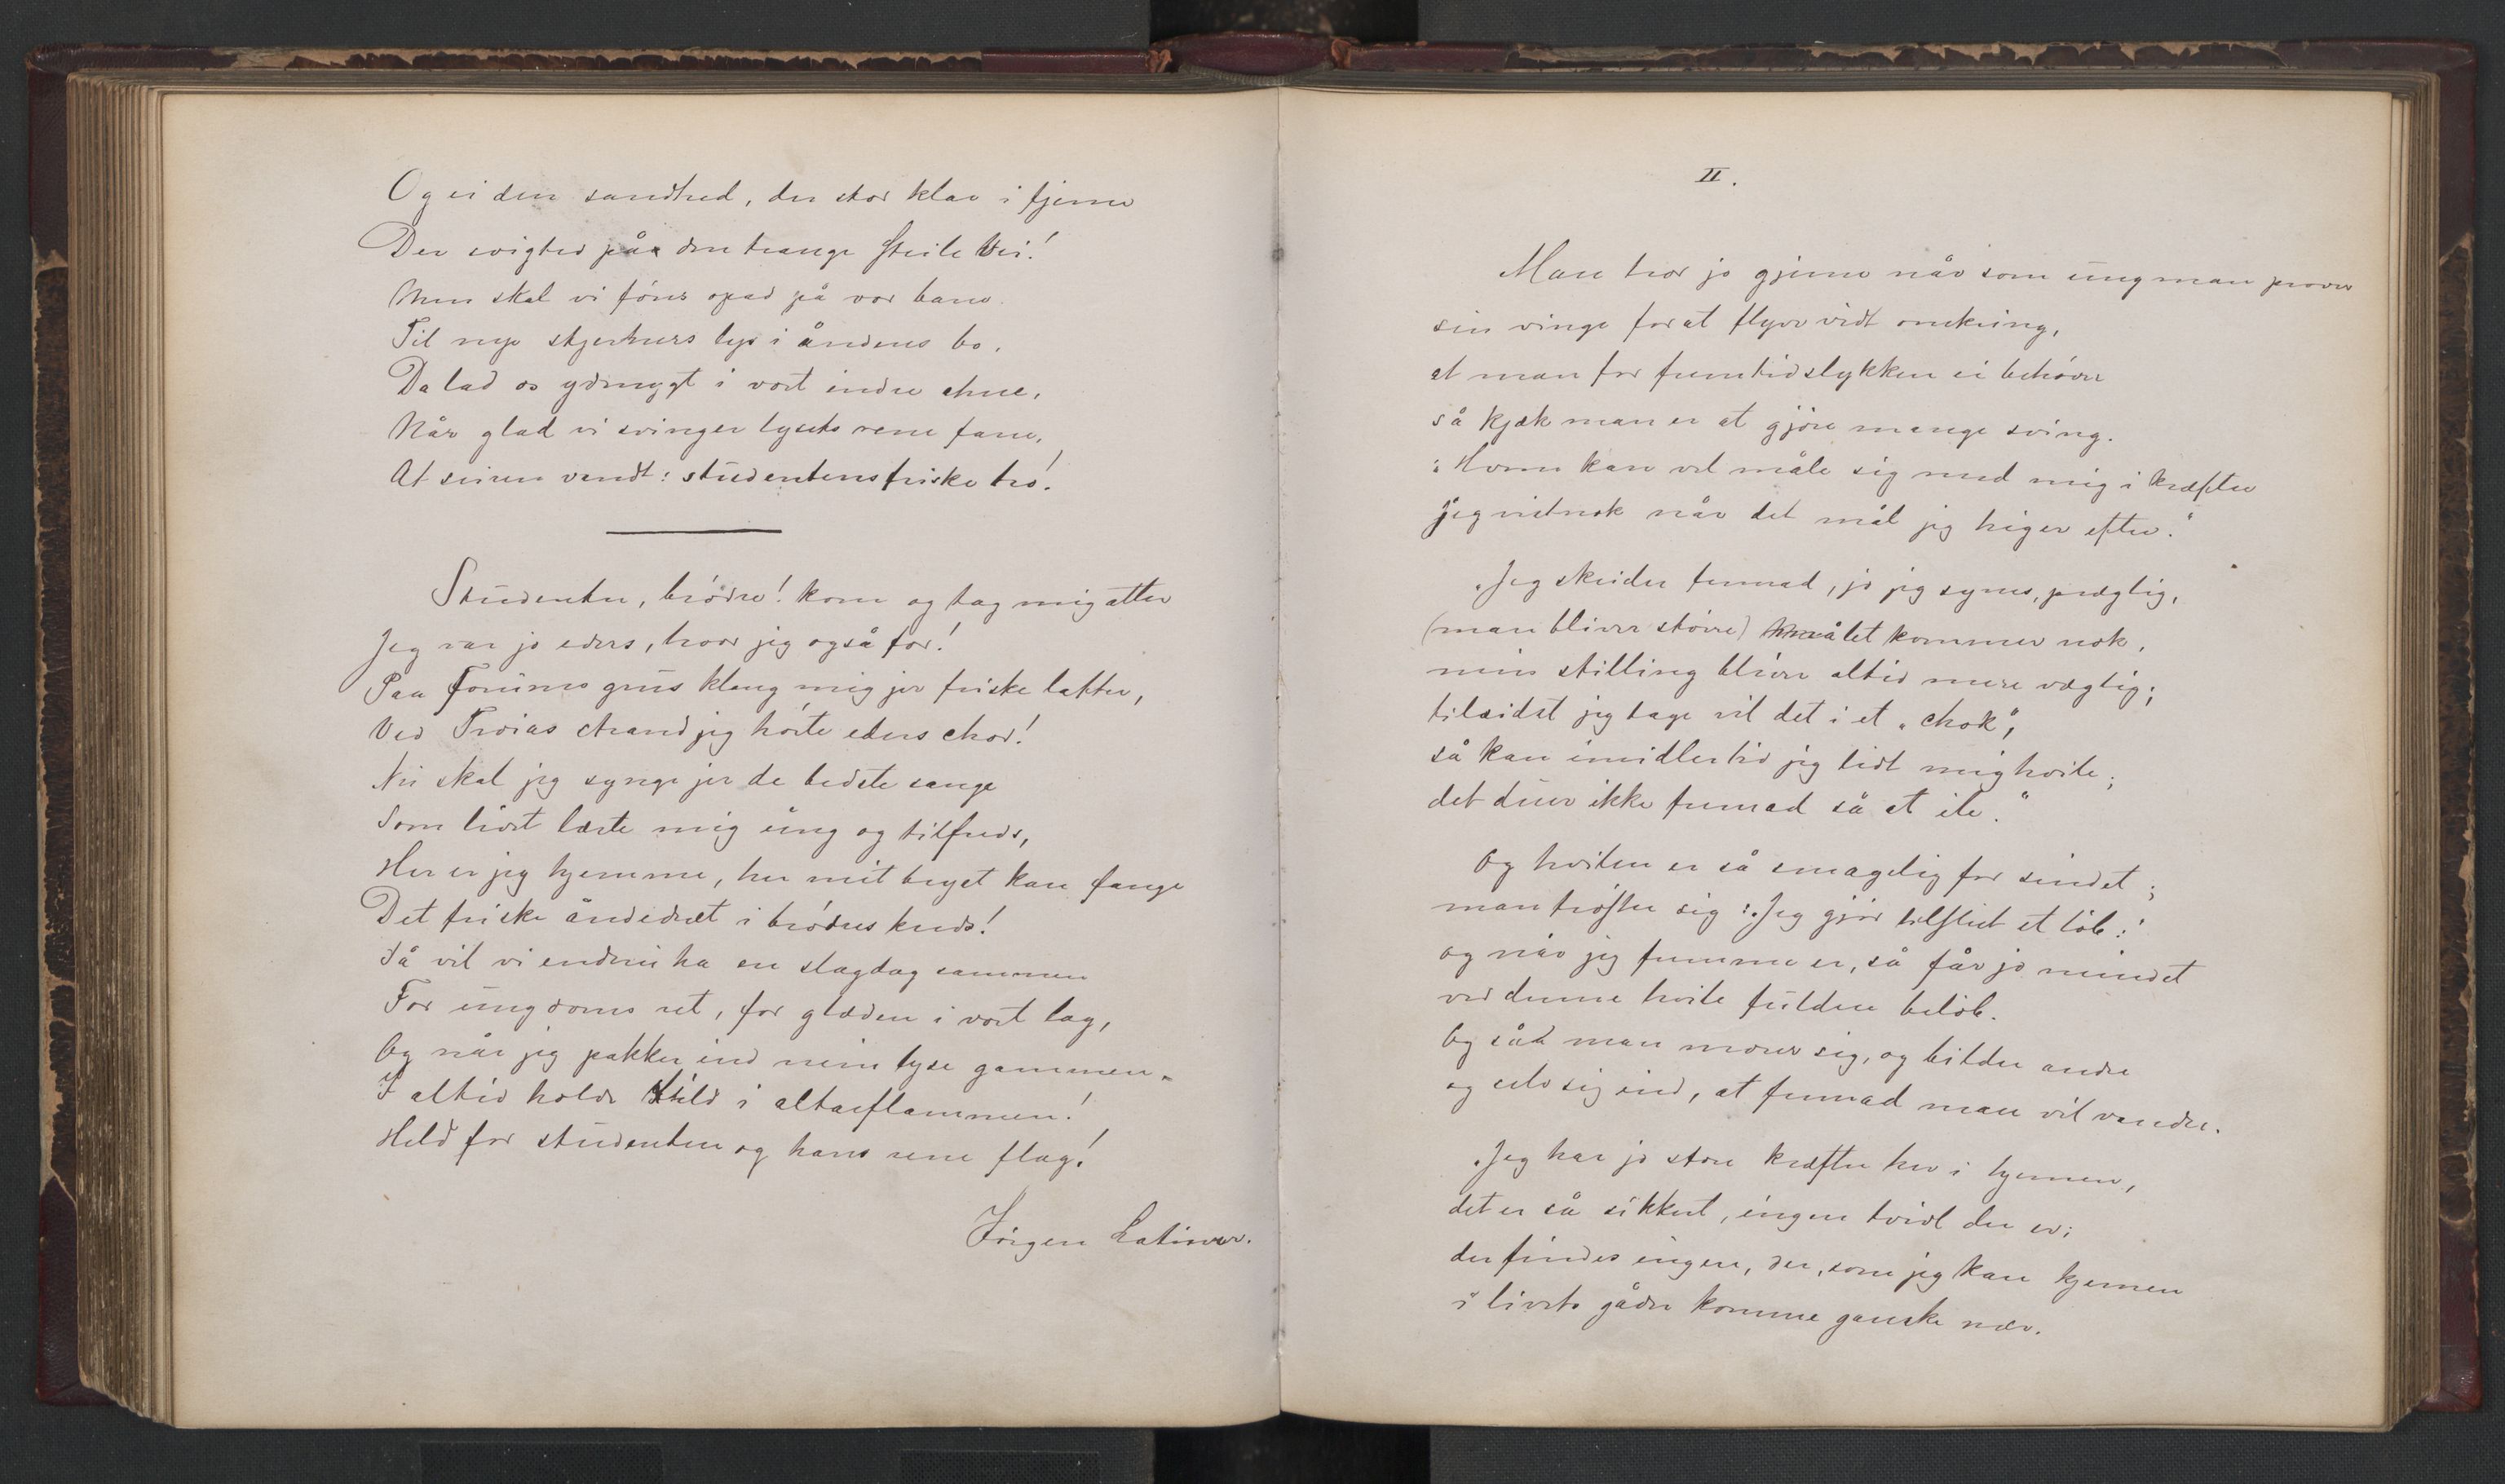 Og ei den sandhed, der stor klar i fjerne
Der svigted på den trange steile Vei!
Men skal vi föres opad på vor bane
Til nye stjerners lys i åndens bo,
Da lad os ydmygt i vort indre ahne,
Når glad vi svinger lysets rene fane,
At seiren vandt: studentens friske tro!
Studenter, brödre! kom og tag mig atter
Jeg var jo eders, hvor jeg også for!
Paa Forums grus klang mig jer friske latter,
Ved Troias strand jeg hörte eders chor!
Nu skal jeg synge jer de bedste sange
Som livet lærte mig ung og tilfreds,
Her er jeg hjemme, her mit bryst kan fange
Det friske åndedræt i brödres kreds!
Så vil vi endnu ha en slagdag sammen
For ungdoms ret, for glæden i vort lag,
Og når jeg pakker ind min lyse gammen
I altid holde Ild i altarflammen!
Held for studenten og hans rene flag!
Jörgen Latiner.
II.
Man tror jo gjerne når som ung man prover
sin vinge for at flyve vidt omkring,
at man for fremtidslykken ei behöver
så kjæk man er at gjöre mange sving.
"Hvem kan vel måle sig med mig i kræfter
jeg vistnok når det mål jeg higer efter."
"Jeg skrider fremad, jo jeg synes, prægtig,
(man bliver större) målet kommer nok,
min stilling bliver altid mere vægtig;
tilsidst jeg tage vil det i et "chok",
så kan imidlertid jeg lidt mig hvile;
det duer ikke fremad så at ile."
Og hvilen er så smagelig for sindet;
man tröster sig: "Jeg gjör tilslut et löb:"
og når jeg fremme er, så får jo mindet
ved denne hvile fuldere belöb.
Og så man morer sig, og bilder andre
og selv sig ind, at fremad man vil vandre.
"Jeg har jo store kræfter her i hjernen,
det er så sikkert, ingen tvivl der er;
der findes ingen, der, som jeg kan kjernen
i livets gåde komme ganske nær.